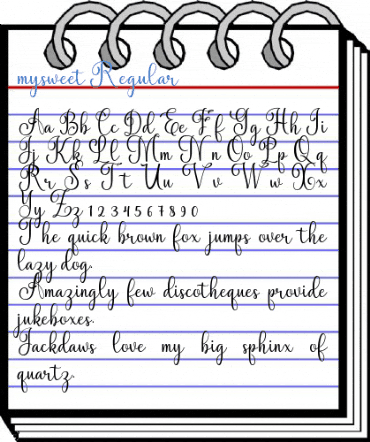 mysweet Regular
Aa Bb Cc Dd Ee Ff Gg Hh Ii
Jj Kk Ll Mm Nn Oo Pp Qq
Rr Ss Tt Uu Vv Ww Xx
Yy Zz 1 2 3 4 5 6 7 8 9 0
The quick brown fox jumps over the
lazy dog.
Amazingly few discotheques provide
jukeboxes.
Jackdaws love my big sphinx of
quartz.